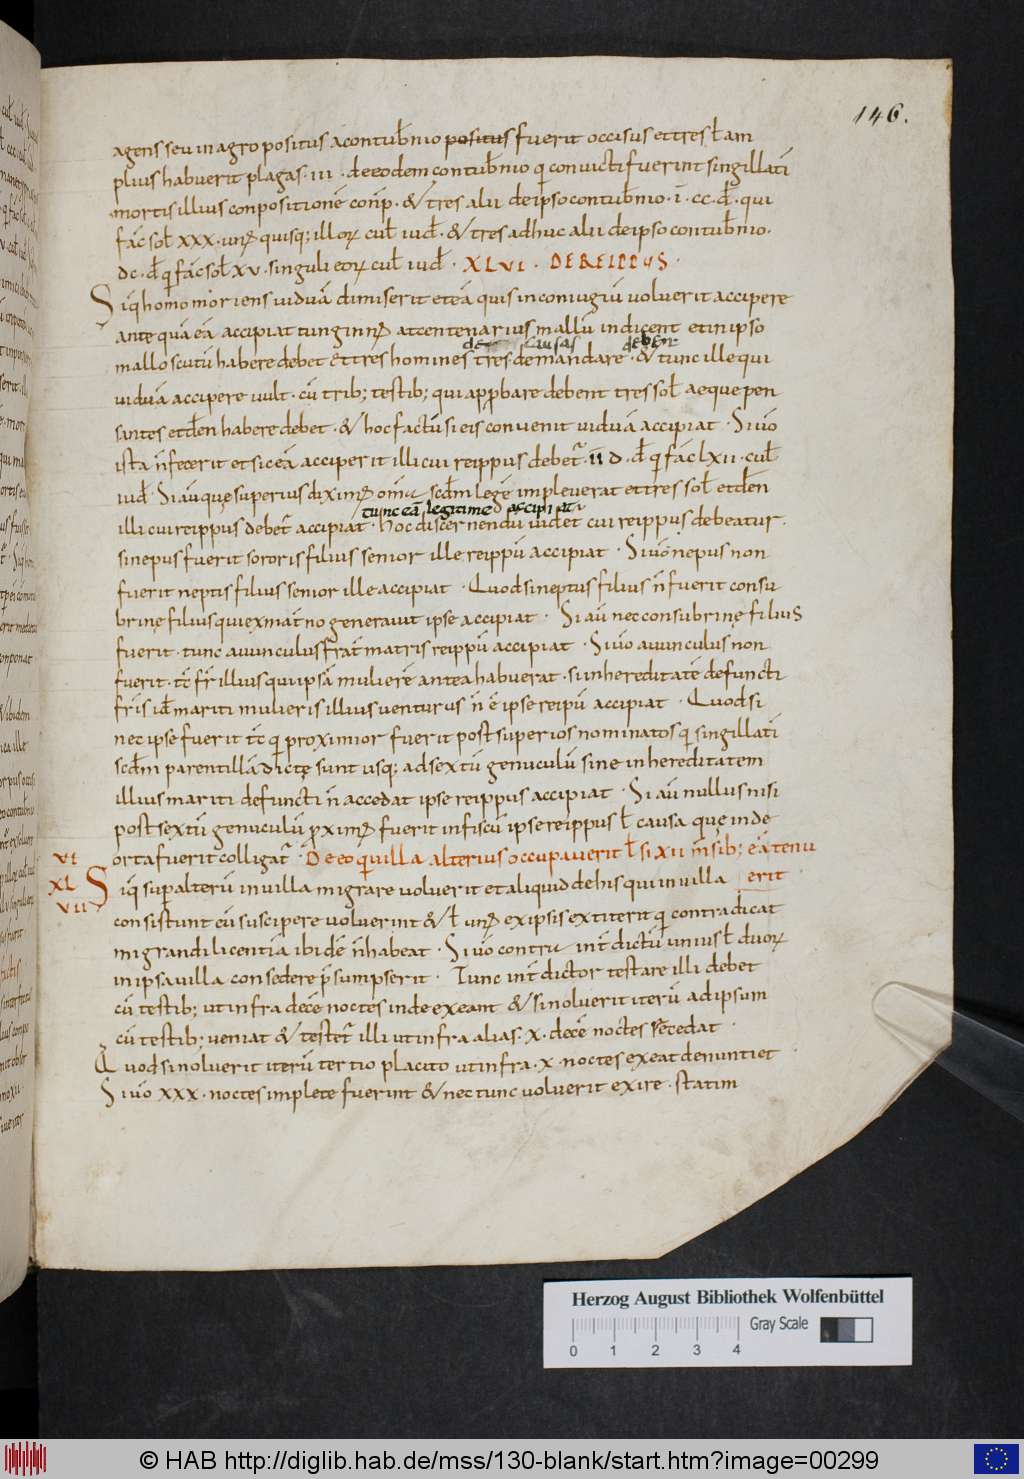 146.
agens seu in agro positus a contuƀnio positus fuerit occisus et tres ł am
plius habuerit plagas · iii · de eodem contuƀnio q̣ convicti fuerint singillatī
mortis illius conpositionē conp̄ · & tres alii de ipso contuƀnio · i · cc · đ · qui
fāc soł xxx · unꝰ quisq; illoꝝ culƀ iuđ · & tres adhuc alii de ipso contuƀnio ·
dc · đ q̣ fāc soł xv · singuli eoꝝ culƀ iuđ · XLVI · DE REIPPUS ·
Siq̣ homo moriens viduā dimiserit et eā quis in coniugiū voluerit accipere
ante quā eā accipiat tunginꝰ at centenarius mallū indicent et in ipso
de causas deben
mallo scutū habere debet et tres homines tres demandare · & tunc ille qui
viduā accipere vult · cū trib; testib; qui app̱bare debent tres soł aeque pen
santes et đen habere debet · & hoc factū si eis convenit viduā accipiat · Si v̄o
ista n̄ fecerit et sic eā acciperit illi cui reippus debet̄ · īī D · đ q̣ fāc lxii · culƀ
iuđ · Si aū quę superius diximꝰ om̄a scđm legē impleverat et tres soł et đen
tunc eā legitime accipiat ·
illi cui reippus debet̄ accipiat · hoc discernendū videt cui reippus debeatur ·
si nepus fuerit sororis filius senior ille reippū accipiat · Si v̄o nepus non
fuerit neptis filius senior ille accipiat · Quod si neptus filius n̄ fuerit consu
brinę filius qui ex māt no generavit ipse accipiat · Si aū nec consubrinę filius
fuerit · tunc avunculus frāt matris reippū accipiat · Si v̄o avunculus non
fuerit · tc̄ fr̄ illius qui ipsā mulierē antea habuerat · si in hereditatē defuncti
fr̄is iđ mariti mulieris illius venturus n̄ ē ipse reipū accipiat · Quod si
nec ipse fuerit tc̄ q̣ proximior fuerit post superios nominatos q̣ singillatī
scđm parentillā dictę sunt usq; ad sextū genuculū sine in hereditatem
illius mariti defuncti n̄ accedat ipse reippus accipiat · Si aū nullus nisi
post sextū genuculū p̱ximꝰ fuerit in fiscū ipse reippus ł causa que inde
orta fuerit colligat̄ · De eo qui villa alterius occupaverit ł si xii m̄sib; eā tenu
erit
VI
XL
VII
Siq̣ sup̱ alterū in villa migrare voluerit et aliquid de his qui in villa
consistunt eū suscipere voluerint & ł unꝰ ex ipsis extiterit q̣ contradicat
migrandi licentia ibidē n̄ habeat · Si v̄o contra int̄dictū unius ł duoꝝ
in ipsa villa consedere p̄sumpserit · Tunc int̄dictor testare illi debet
cū testib; ut infra decē noctes inde exeant & si noluerit iterū ad ipsum
cū testib; veniat & testet̄ illi ut infra alias · x · decē noctes secedat ·
Quod si noluerit iterū tertio placito ut infra · x · noctes exeat denuntiet
Si v̄o xxx · noctes implete fuerint & nec tunc voluerit exire · statim
Herzog August Bibliothek Wolfenbüttel
Gray Scale
0 1 2 3 4
© HAB http://diglib.hab.de/mss/130-blank/start.htm?image=00299